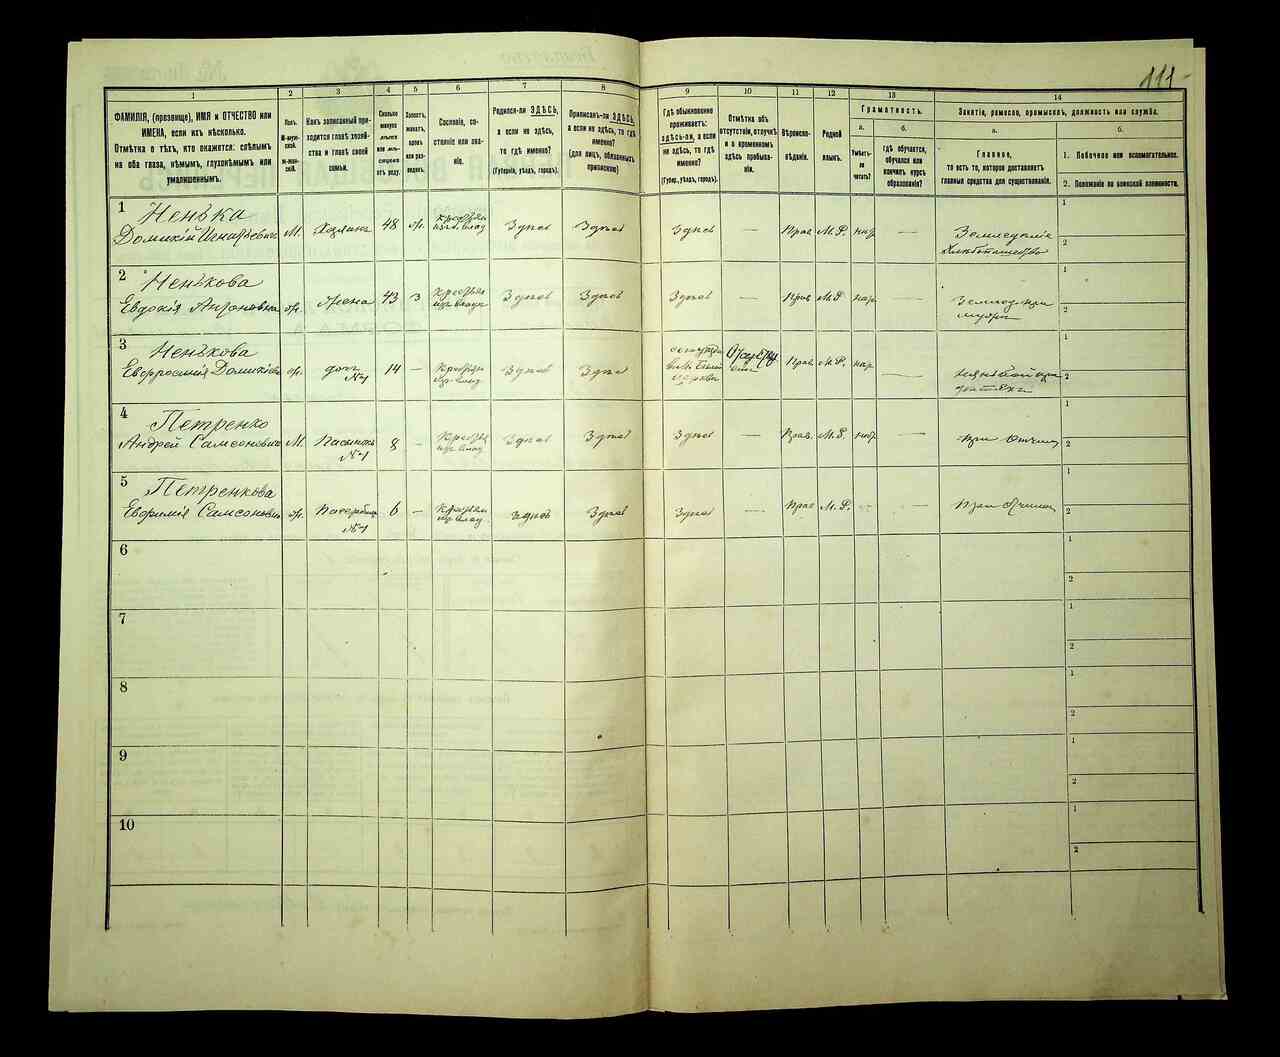 111
1 2 3 4 5 6 7 8 9 10 11 12 13 14
ФАМИЛІЯ, (прозвище), ИМЯ и ОТЧЕСТВО или
ИМЕНА, если ихъ нѣсколько.
Отмѣтка о тѣхъ, кто окажется: слѣпымъ
на оба глаза, нѣмымъ, глухонѣмымъ или
умалишеннымъ.
Полъ.
М-муж-
ской.
Ж-жен-
скій.
Какъ записанный при-
ходится главѣ хозяй-
ства и главѣ своей
семьи.
Сколько
минуло
лѣтъ
или мѣ-
сяцевъ
отъ роду.
Холостъ,
женатъ,
вдовъ
или раз-
веденъ.
Сословіе, со-
стояніе или зва-
ніе.
Родился-ли ЗДѢСЬ,
а если не здѣсь,
то гдѣ именно?
(Губернія, уѣздъ, городъ).
Приписанъ-ли ЗДѢСЬ,
а если не здѣсь, то гдѣ
именно?
(для лицъ, обязанныхъ
припискою)
Гдѣ обыкновенно
проживаетъ:
здѣсь-ли, а если
не здѣсь, то гдѣ
именно?
(Губер., уѣздъ, городъ).
Отмѣтка объ
отсутствіи, отлучкѣ
и о временномъ
здѣсь пребыва-
ніи.
Вѣроиспо-
вѣданіе.
Родной
языкъ.
Грамотность.
а.
Умѣетъ-
ли
читать?
б.
гдѣ обучается,
обучался или
кончилъ курсъ
образованія?
Занятіе, ремесло, промыселъ, должность или служба.
а.
Главное,
то есть то, которое доставляетъ
главныя средства для существованія.
б.
1. Побочное или вспомогательное.
2. Положеніе по воинской повинности.
1 Ненька
Домикій Игнатьевичъ М. Хозяинъ 48 Здѣсь Здѣсь Здѣсь — Прав М.Р. Земледѣліе
1
2
2 Ненькова
Евдокія Антоновна Жена 43 3 Здѣсь Здѣсь Здѣсь — Прав М.Р
1
2
3 Ненькова
Евфросинія дочь 14 — Здѣсь Здѣсь Прав М.Р. —
№1
1
2
4 Петренко
Андрей Самсоновичъ М. Пасынокъ 8 — Здѣсь Здѣсь Здѣсь — Прав. М.Р. — при отчимѣ
№1
1
2
5 Петренкова
Евфимія Самсоновна 6 — Здѣсь Здѣсь Здѣсь — Прав М.Р. — При отчимѣ
№1
1
2
6
1
2
7
1
2
8
1
2
9
1
2
10
1
2